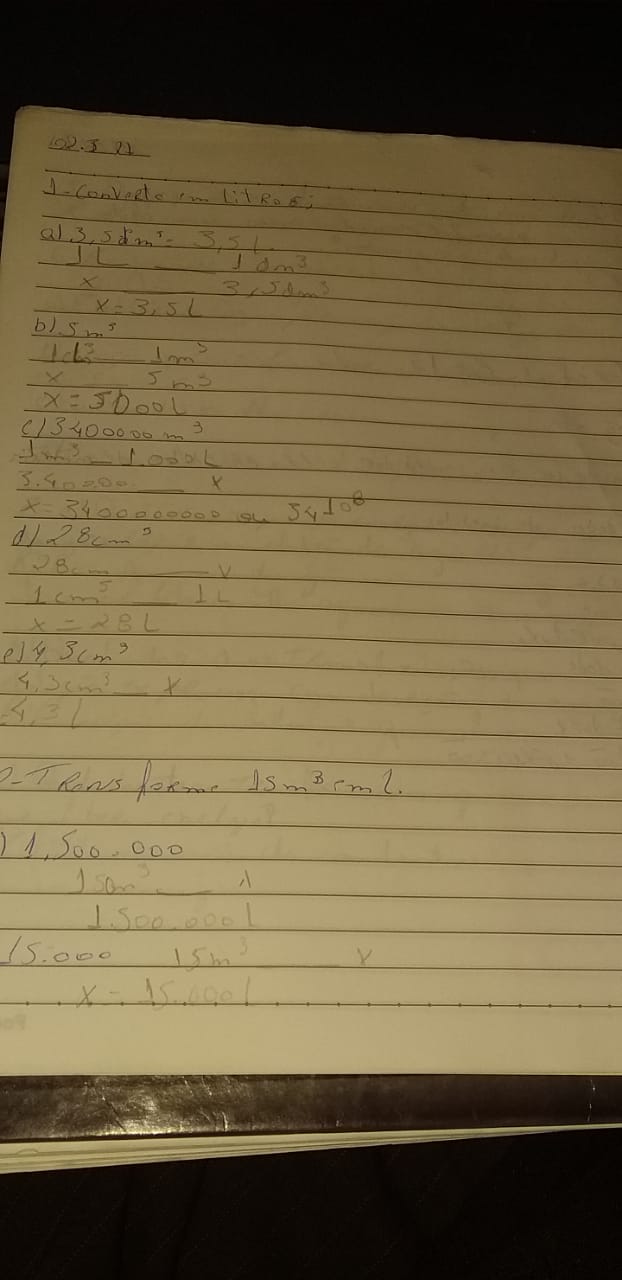 02.3 21
1-Converta em litros:
a) 3,5dm³ = 3,5 L
1 L ___ 1 dm³
x ___ 3,5dm³
x = 3,5 L
b) 5m³
1m³
x ___ 5 m³
x = 5000 L
c) 3400000 m³
1 m³ — 1.000 L
3.40000 ___ x
x = 3400000000 ou 34 10⁸
d) 28cm³
28cm ___ x
1 cm³ ___ 1 L
x = 28 L
e) 4,3cm³
4,3cm³ ___ x
4,3 l
-Transforme 15m³ em l.
) 1,500.000
150m³ ___
1.500.000 l
15.000 15m³ ___ x
x = 15.000 l